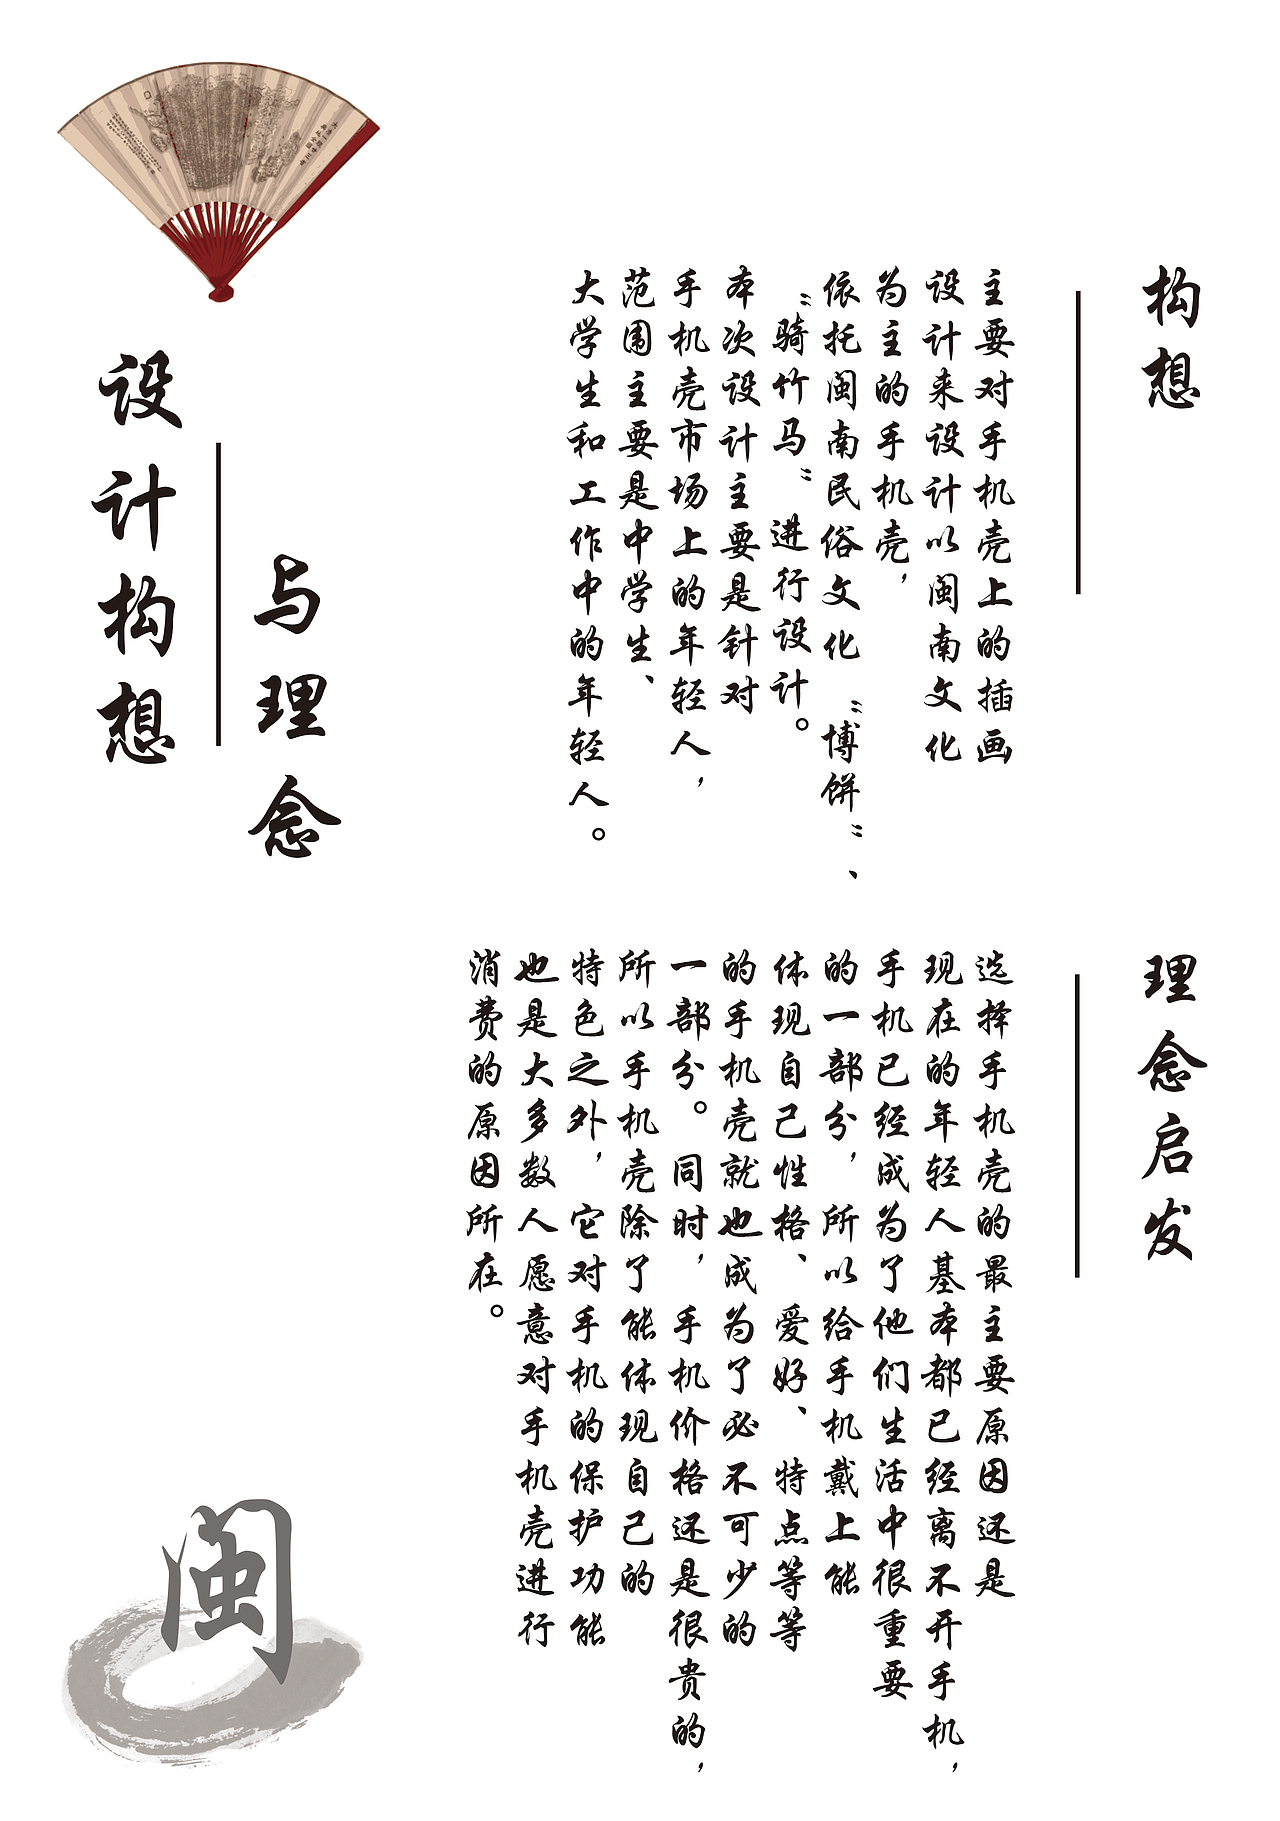 设计构想
与理念
构想
主要对手机壳上的插画
设计来设计以闽南文化
为主的手机壳，
依托闽南民俗文化“博饼”、
“骑竹马”进行设计。
本次设计主要是针对
手机壳市场上的年轻人，
范围主要是中学生、
大学生和工作中的年轻人。
理念启发
选择手机壳的最主要原因还是
现在的年轻人基本都已经离不开手机，
手机已经成为了他们生活中很重要
的一部分，所以给手机戴上能
体现自己性格、爱好、特点等等
的手机壳就也成为了必不可少的
一部分。同时，手机价格还是很贵的，
所以手机壳除了能体现自己的
特色之外，它对手机的保护功能
也是大多数人愿意对手机壳进行
消费的原因所在。
闽